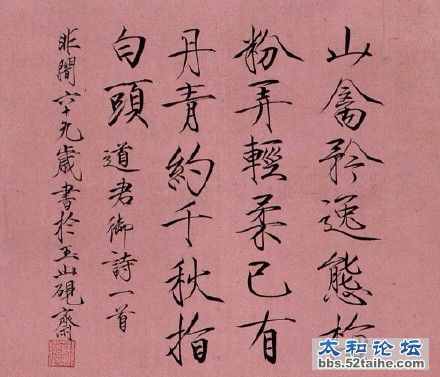 山禽矜逸態梅
粉弄輕柔已有
丹青約千秋指
白頭 道君御詩一首
非闇六十九歲書於玉山硯齋
太和论坛
bbs.52taihe.com